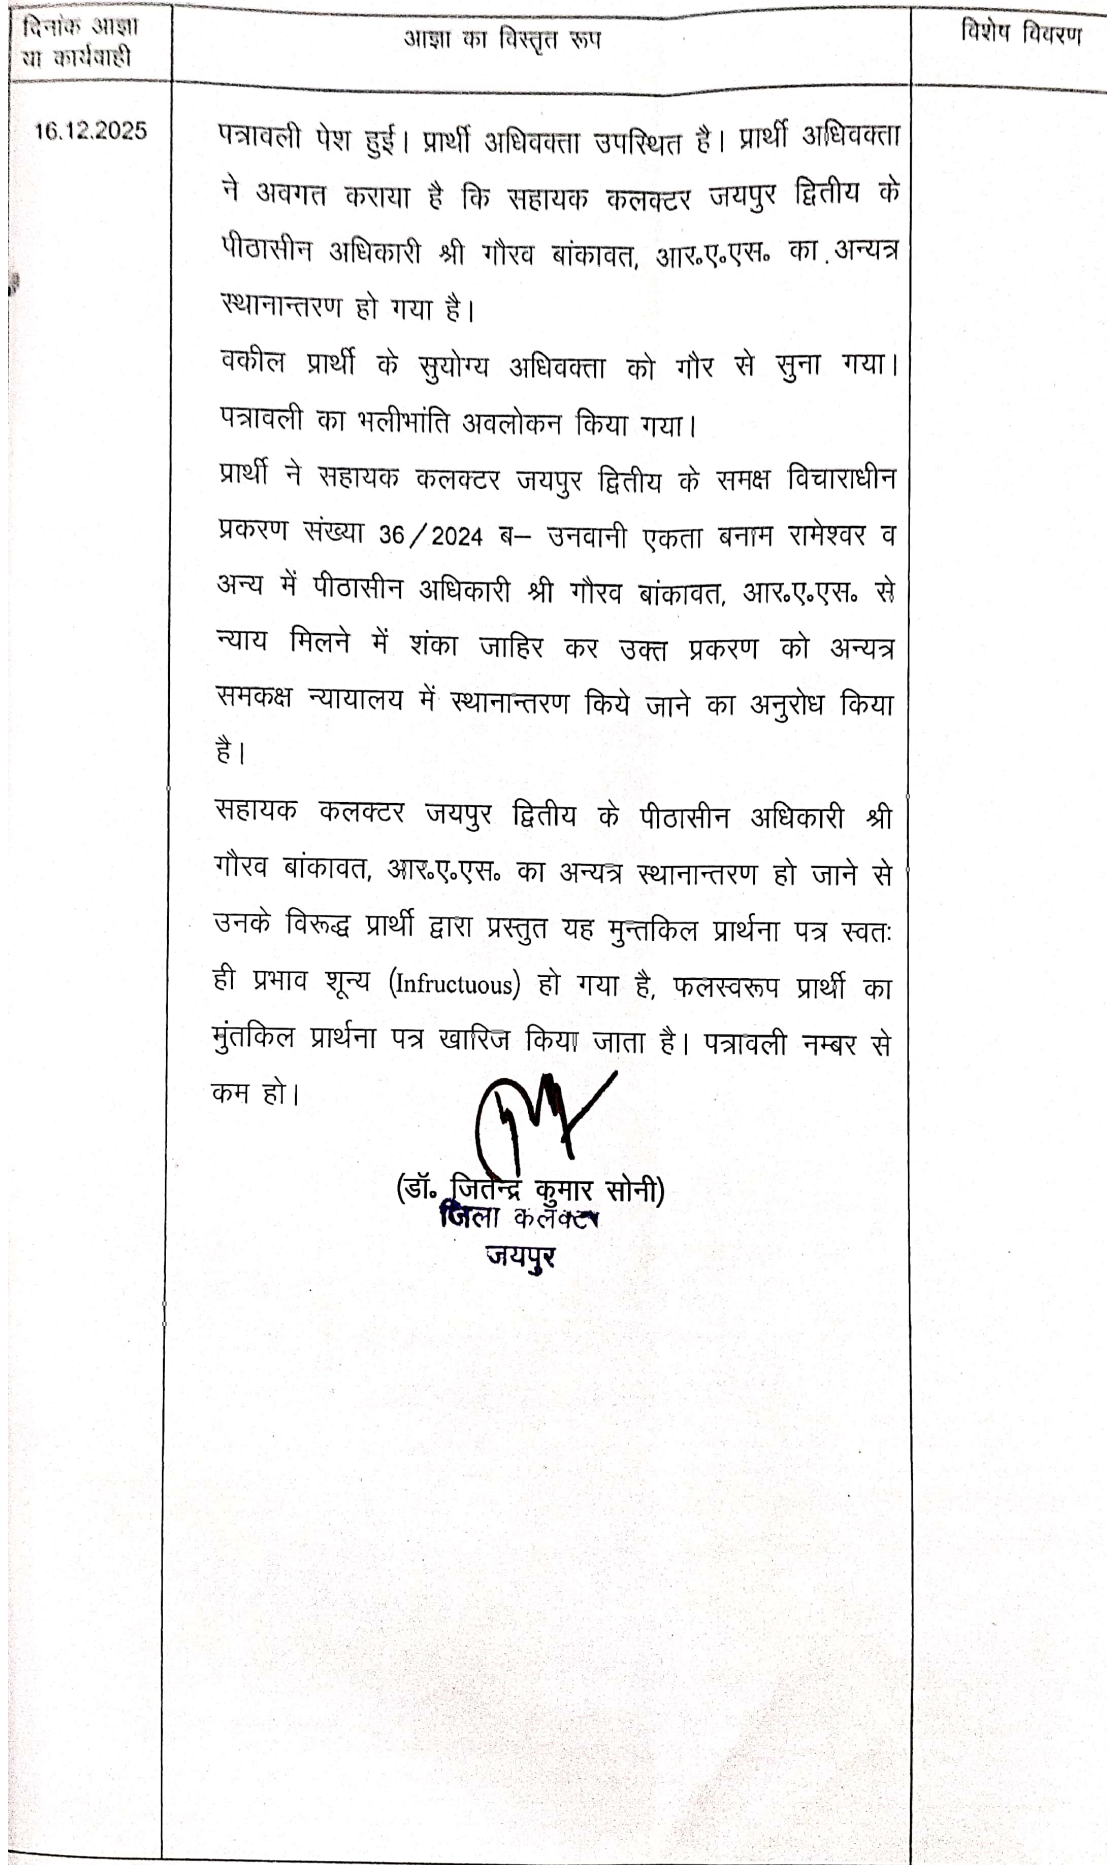 दिनांक आज्ञा
या कार्यवाही
आज्ञा का विस्तृत रूप
विशेष विवरण
16.12.2025
पत्रावली पेश हुई। प्रार्थी अधिवक्ता उपस्थित है। प्रार्थी अधिवक्ता
ने अवगत कराया है कि सहायक कलक्टर जयपुर द्वितीय के
पीठासीन अधिकारी श्री गौरव बांकावत, आर०ए०एस० का अन्यत्र
स्थानान्तरण हो गया है।
वकील प्रार्थी के सुयोग्य अधिवक्ता को गौर से सुना गया।
पत्रावली का भलीभांति अवलोकन किया गया।
प्रार्थी ने सहायक कलक्टर जयपुर द्वितीय के समक्ष विचाराधीन
प्रकरण संख्या 36/2024 ब– उनवानी एकता बनाम रामेश्वर व
अन्य में पीठासीन अधिकारी श्री गौरव बांकावत, आर०ए०एस० से
न्याय मिलने में शंका जाहिर कर उक्त प्रकरण को अन्यत्र
समकक्ष न्यायालय में स्थानान्तरण किये जाने का अनुरोध किया
है।
सहायक कलक्टर जयपुर द्वितीय के पीठासीन अधिकारी श्री
गौरव बांकावत, आर०ए०एस० का अन्यत्र स्थानान्तरण हो जाने से
उनके विरूद्ध प्रार्थी द्वारा प्रस्तुत यह मुन्तकिल प्रार्थना पत्र स्वतः
ही प्रभाव शून्य (Infructuous) हो गया है, फलस्वरूप प्रार्थी का
मुंतकिल प्रार्थना पत्र खारिज किया जाता है। पत्रावली नम्बर से
कम हो।
(डॉ० जितेन्द्र कुमार सोनी)
जिला कलक्टर
जयपुर